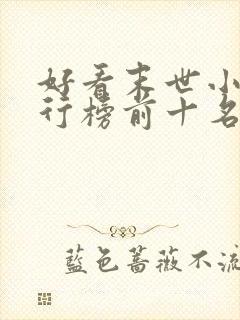 好看末世小
行榜前十名
藍色薔薇不流